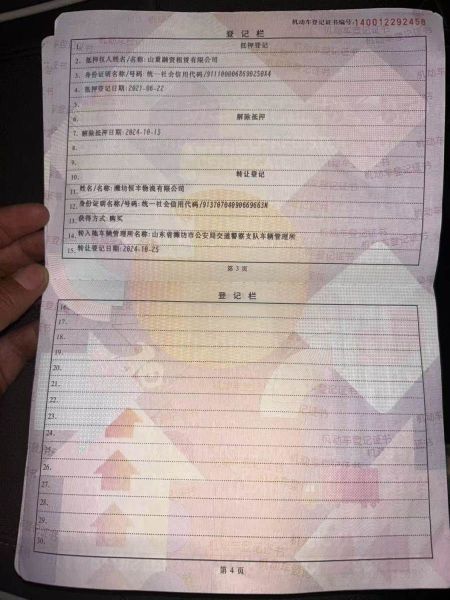 机动车登记证书编号:140012292458
登记栏
1. 抵押登记
2. 抵押权人姓名/名称:山重融资租赁有限公司
3. 身份证明名称/号码:统一社会信用代码/9111000068690250X4
4. 抵押登记日期:2021-06-22
5.
6. 解除抵押
7. 解除抵押日期:2024-10-15
8.
9.
10. 转让登记
11. 姓名/名称:潍坊恒丰物流有限公司
12. 身份证明名称/号码:统一社会信用代码/91370704090669663N
13. 获得方式:购买
14. 转入地车辆管理所名称:山东省潍坊市公安局交通警察支队车辆管理所
15. 转让登记日期:2024-10-25
第3页
登记栏
16.
17.
18.
19.
20.
21.
22.
23.
24.
25.
26.
27.
28.
29.
30.
第4页